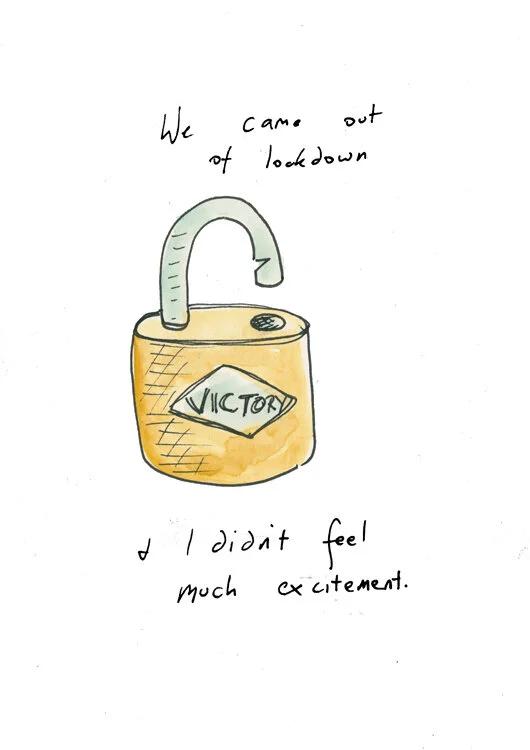 We came out
of lockdown
VICTORY
& I didn't feel
much excitement.